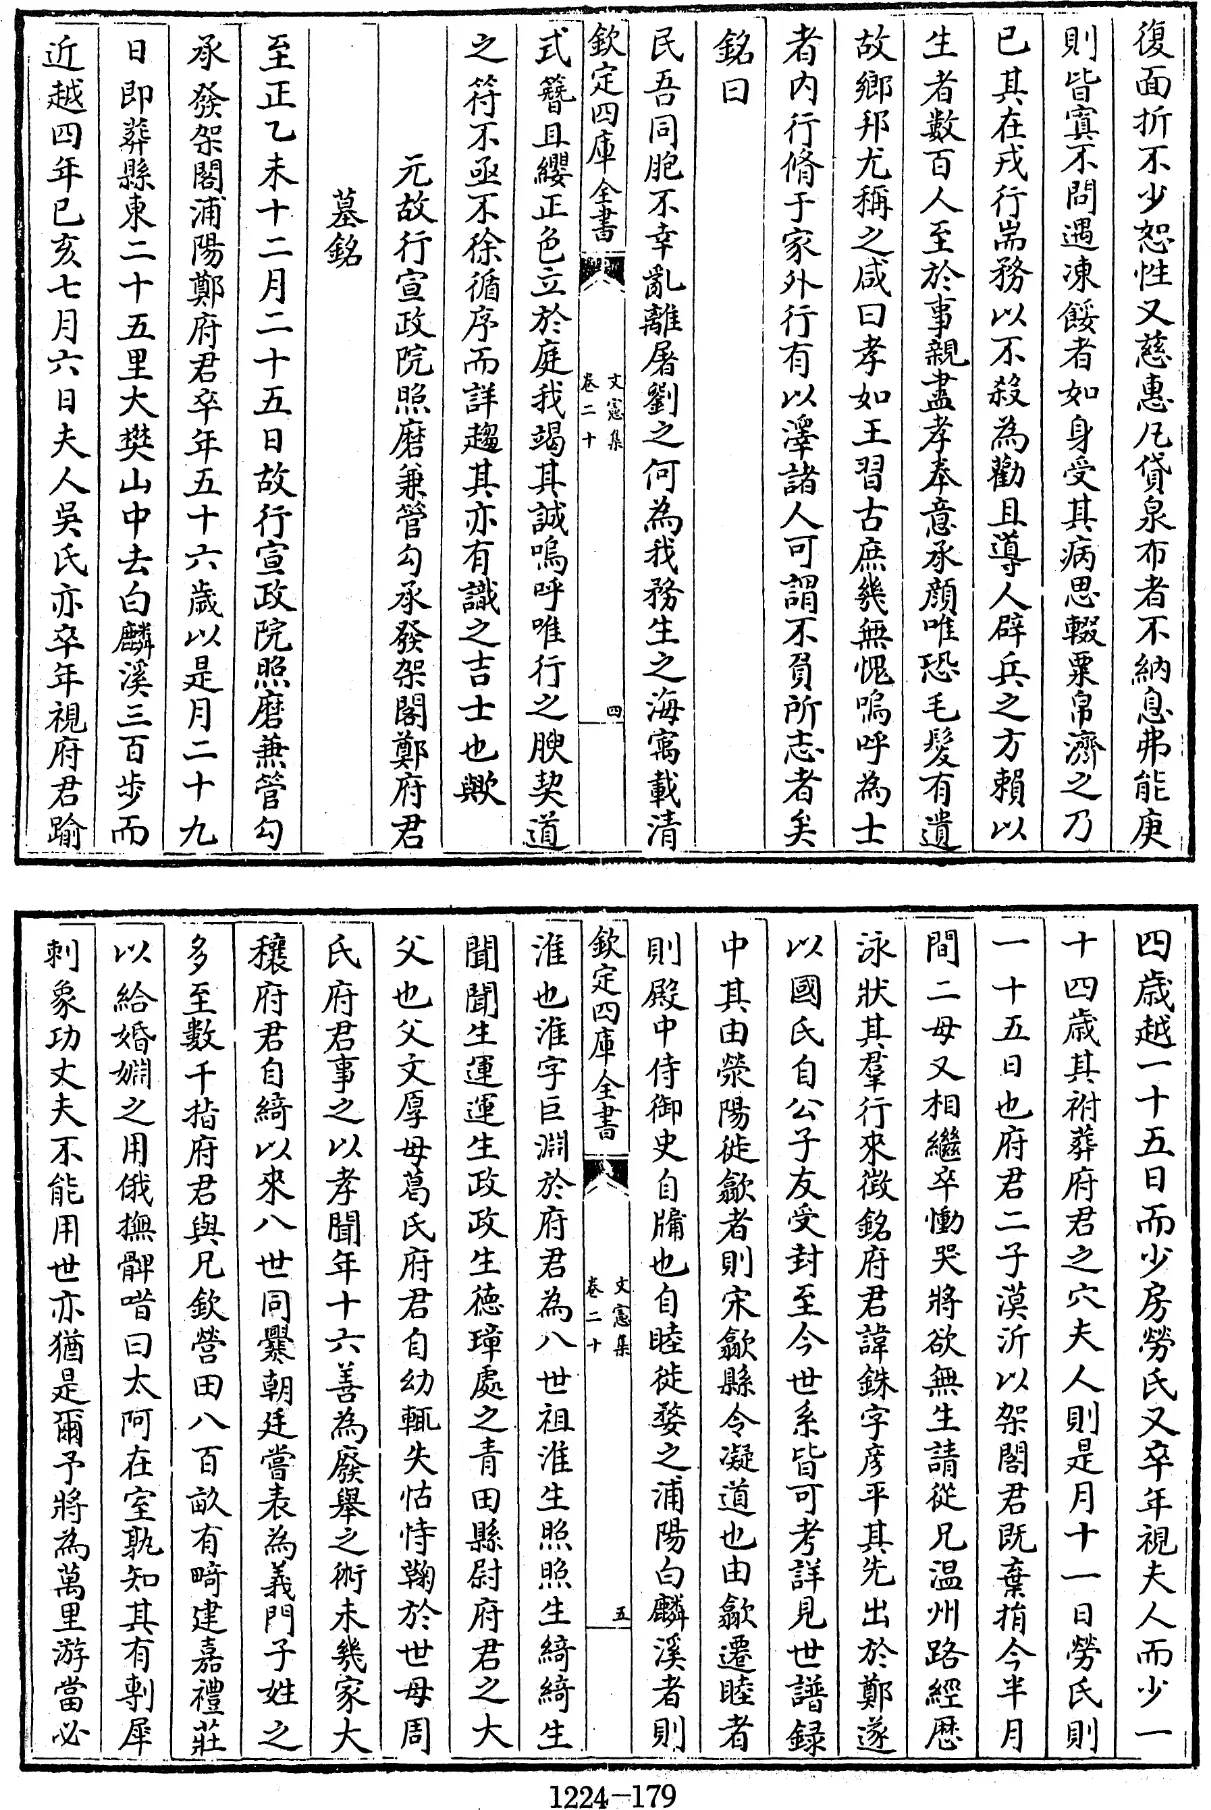 復面折不少恕性又慈惠凡貸泉布者不納息弗能庚
則皆寘不問遇凍餒者如身受其病思輟粟帛濟之乃
已其在戎行耑務以不殺為勸且導人辟兵之方賴以
生者數百人至於事親盡孝奉意承顔唯恐毛髮有遺
故鄉邦尤稱之咸曰孝如王習古庶幾無愧嗚呼為士
者内行脩于家外行有以澤諸人可謂不負所志者矣
銘曰
民吾同胞不幸亂離屠劉之何為我務生之海寓載清
欽定四庫全書
文憲集
卷二十
四
式簪且纓正色立於庭我竭其誠嗚呼唯行之腴契道
之符不亟不徐循序而詳趨其亦有識之吉士也歟
元故行宣政院照磨兼管勾承發架閣鄭府君
墓銘
至正乙未十二月二十五日故行宣政院照磨兼管勾
承發架閣浦陽鄭府君卒年五十六歲以是月二十九
日即葬縣東二十五里大樊山中去白麟溪三百步而
近越四年已亥七月六日夫人吳氏亦卒年視府君踰
四歲越一十五日而少房勞氏又卒年視夫人而少一
十四歲其祔葬府君之穴夫人則是月十一日勞氏則
一十五日也府君二子漠沂以架閣君既棄捐今半月
間二母又相繼卒慟哭將欲無生請從兄温州路經歷
泳狀其羣行來徵銘府君諱銖字彦平其先出於鄭遂
以國氏自公子友受封至今世系皆可考詳見世譜録
中其由滎陽徙歙者則宋歙縣令凝道也由歙遷睦者
則殿中侍御史自牖也自睦徙婺之浦陽白麟溪者則
欽定四庫全書
文憲集
卷二十
五
淮也淮字巨淵於府君為八世祖淮生照照生綺綺生
聞聞生運運生政政生徳璋處之青田縣尉府君之大
父也父文厚母葛氏府君自幼輒失怙恃鞠於世母周
氏府君事之以孝聞年十六善為廢舉之術未幾家大
穰府君自綺以來八世同爨朝廷嘗表為義門子姓之
多至數千指府君與兄欽營田八百畝有畸建嘉禮莊
以給婚姻之用俄撫髀喈曰太阿在室孰知其有剸犀
刺象功丈夫不能用世亦猶是爾予將為萬里游當必
1224-179